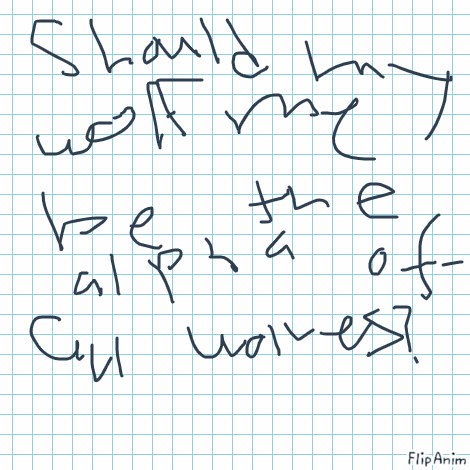 Should my
wolf me
be the
alpha of
all wolves?
FlipAnim